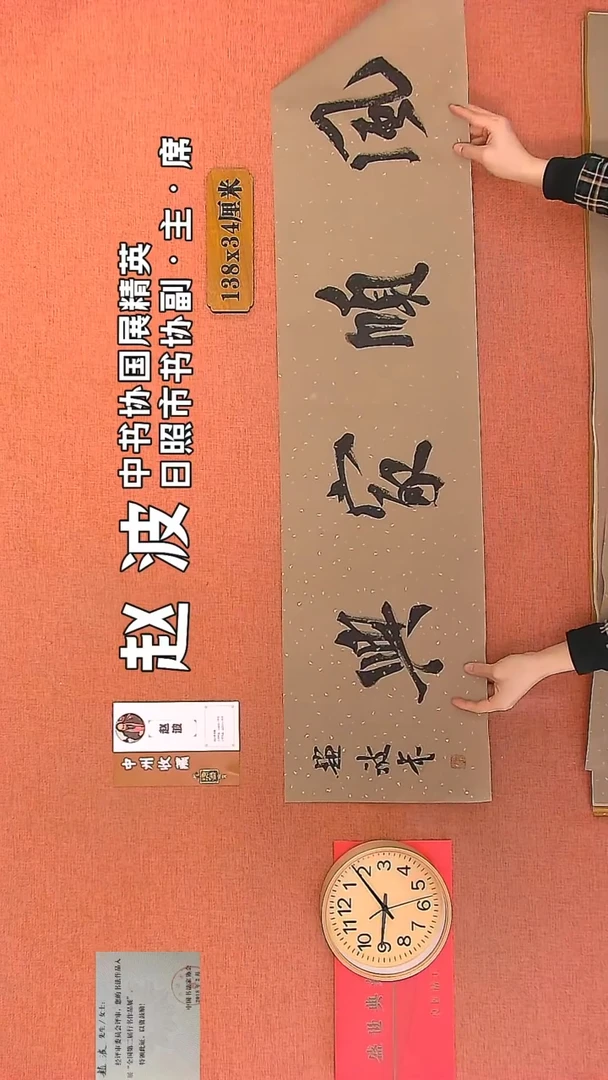 赵波
中书协国展精英
日照市书协副·主·席
138x34厘米
赵波
中州收藏
風順家興
趙波书
赵波 先生/女士:
经评审委员会评审,您的书法作品入
展“全国第二届行书作品展”。
特颁此证,以资鼓励!
中国书法家协会
盛世典
12
1
2
3
4
5
6
7
8
9
10
11